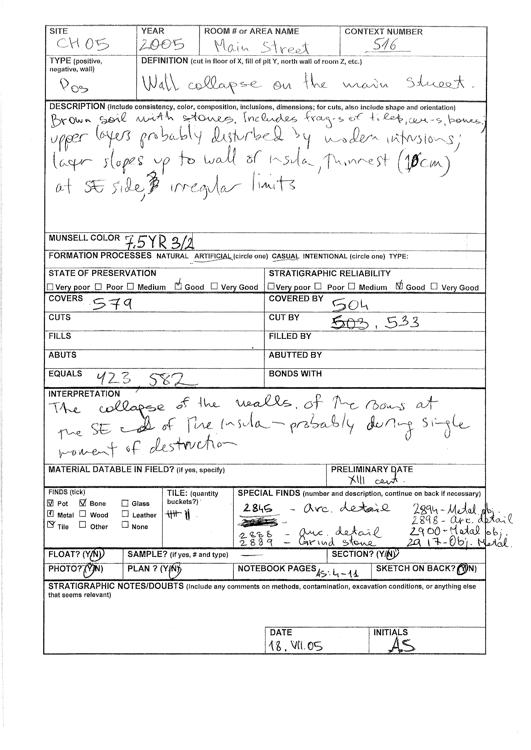 SITE YEAR ROOM # or AREA NAME CONTEXT NUMBER
CH05 2005 Main Street 516
TYPE (positive, negative, wall) DEFINITION (cut in floor of X, fill of pit Y, north wall of room Z, etc.)
Pos Wall collapse on the main street.
DESCRIPTION (include consistency, color, composition, inclusions, dimensions; for cuts, also include shape and orientation)
Brown soil with stones. Includes frag-s of tiles, cer-s, bones;
upper layers probably disturbed by modern intrusions;
layer slopes up to wall of insula, thinnest (10cm)
at SE side, irregular limits
MUNSELL COLOR 7.5YR 3/2
FORMATION PROCESSES NATURAL ARTIFICIAL (circle one) CASUAL INTENTIONAL (circle one) TYPE:
STATE OF PRESERVATION STRATIGRAPHIC RELIABILITY
Very poor Poor Medium Good Very Good Very poor Poor Medium Good Very Good
COVERS 579 COVERED BY 504
CUTS CUT BY 503, 533
FILLS FILLED BY
ABUTS ABUTTED BY
EQUALS 423, 582 BONDS WITH
INTERPRETATION
The collapse of the walls of the rooms at
the SE end of the insula – probably during single
moment of destruction
MATERIAL DATABLE IN FIELD? (if yes, specify) PRELIMINARY DATE
XIII cent.
FINDS (tick) TILE: (quantity buckets?) SPECIAL FINDS (number and description, continue on back if necessary)
Pot Bone Glass
Metal Wood Leather
Tile Other None
2845 - arc. detail 2894-Metal obj.
2898 - Arc. detail
2888 - arc. detail 2900-Metal obj.
2889 - Grind stone 2917-Obj. Metal
FLOAT? (Y/N) SAMPLE? (if yes, # and type) — SECTION? (Y/N)
PHOTO? (Y/N) PLAN ? (Y/N) NOTEBOOK PAGES AS:4-11 SKETCH ON BACK? (Y/N)
STRATIGRAPHIC NOTES/DOUBTS (Include any comments on methods, contamination, excavation conditions, or anything else
that seems relevant)
DATE INITIALS
18.VII.05 AS